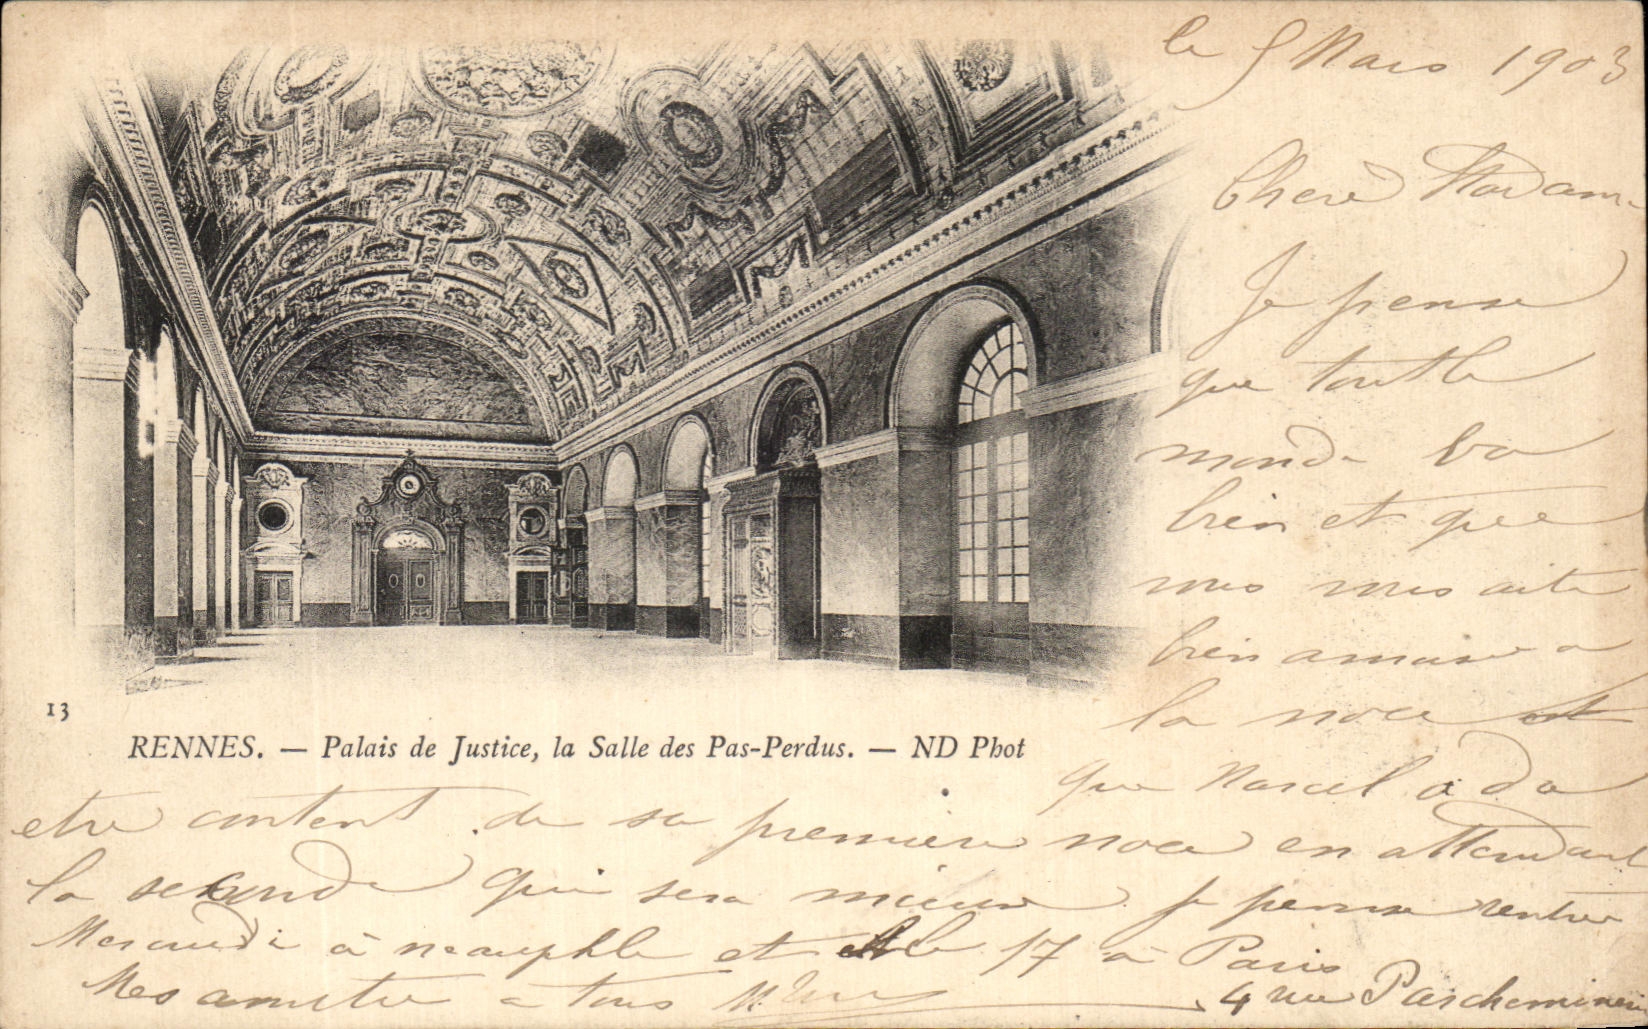 le 5 Mars 1903
Chere Madame
Je pense
que tout le
monde va
bien et que
bien amuse a
la noce et
13
RENNES. — Palais de Justice, la Salle des Pas-Perdus. — ND Phot
que Marcel a da
etre content de sa premiere noce en attendant
la seconde qui sera mieux Je pense rentrer
Mercredi à neauphle et le 17 à Paris
Mes amitie a tous
4 rue Parcheminerie